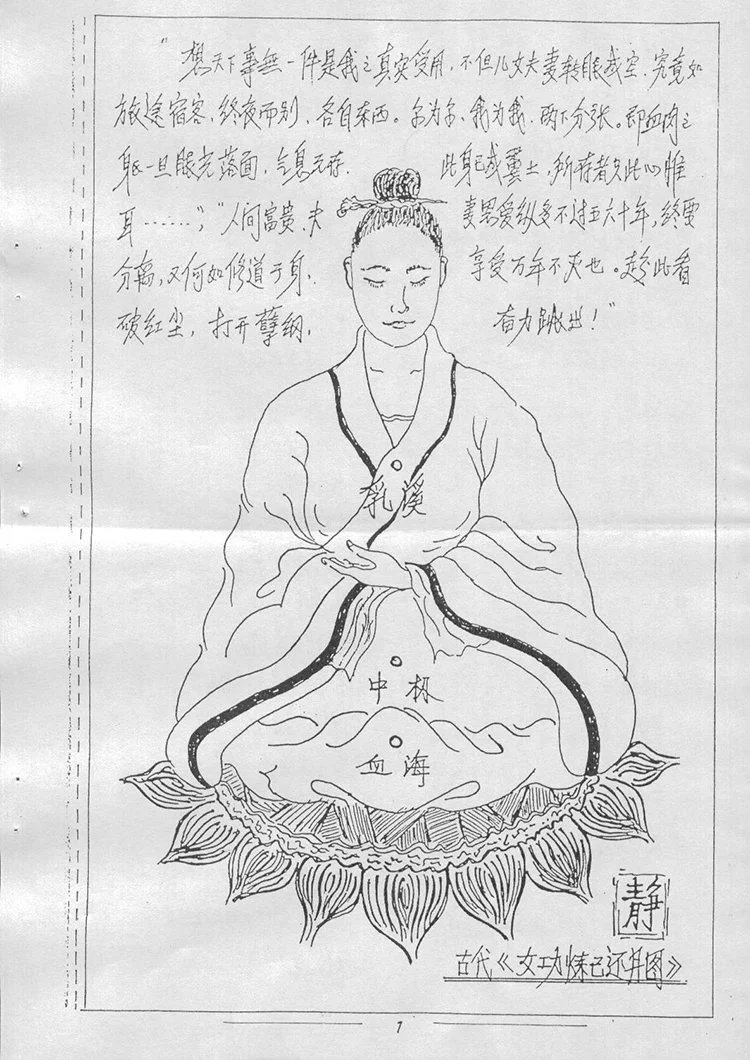 "想天下事無一件是我之真实受用,不但儿女夫妻转眼成空.究竟如
旅途宿客,终夜而别.各自东西。尔为尔、我为我.两下分张。即血肉之
身一旦眼光落面,气息无存. 此身已成土,所存者此心惟
耳……;"人间富贵.夫 妻恩爱纵多不过五六十年,终要
分离,又何如修道于身. 享受万年不灭也。趁此看
破红尘,打开孽纲, 奋力跳出!"
乳溪
中极
血海
靜
古代《女功炼己还丹图》
1